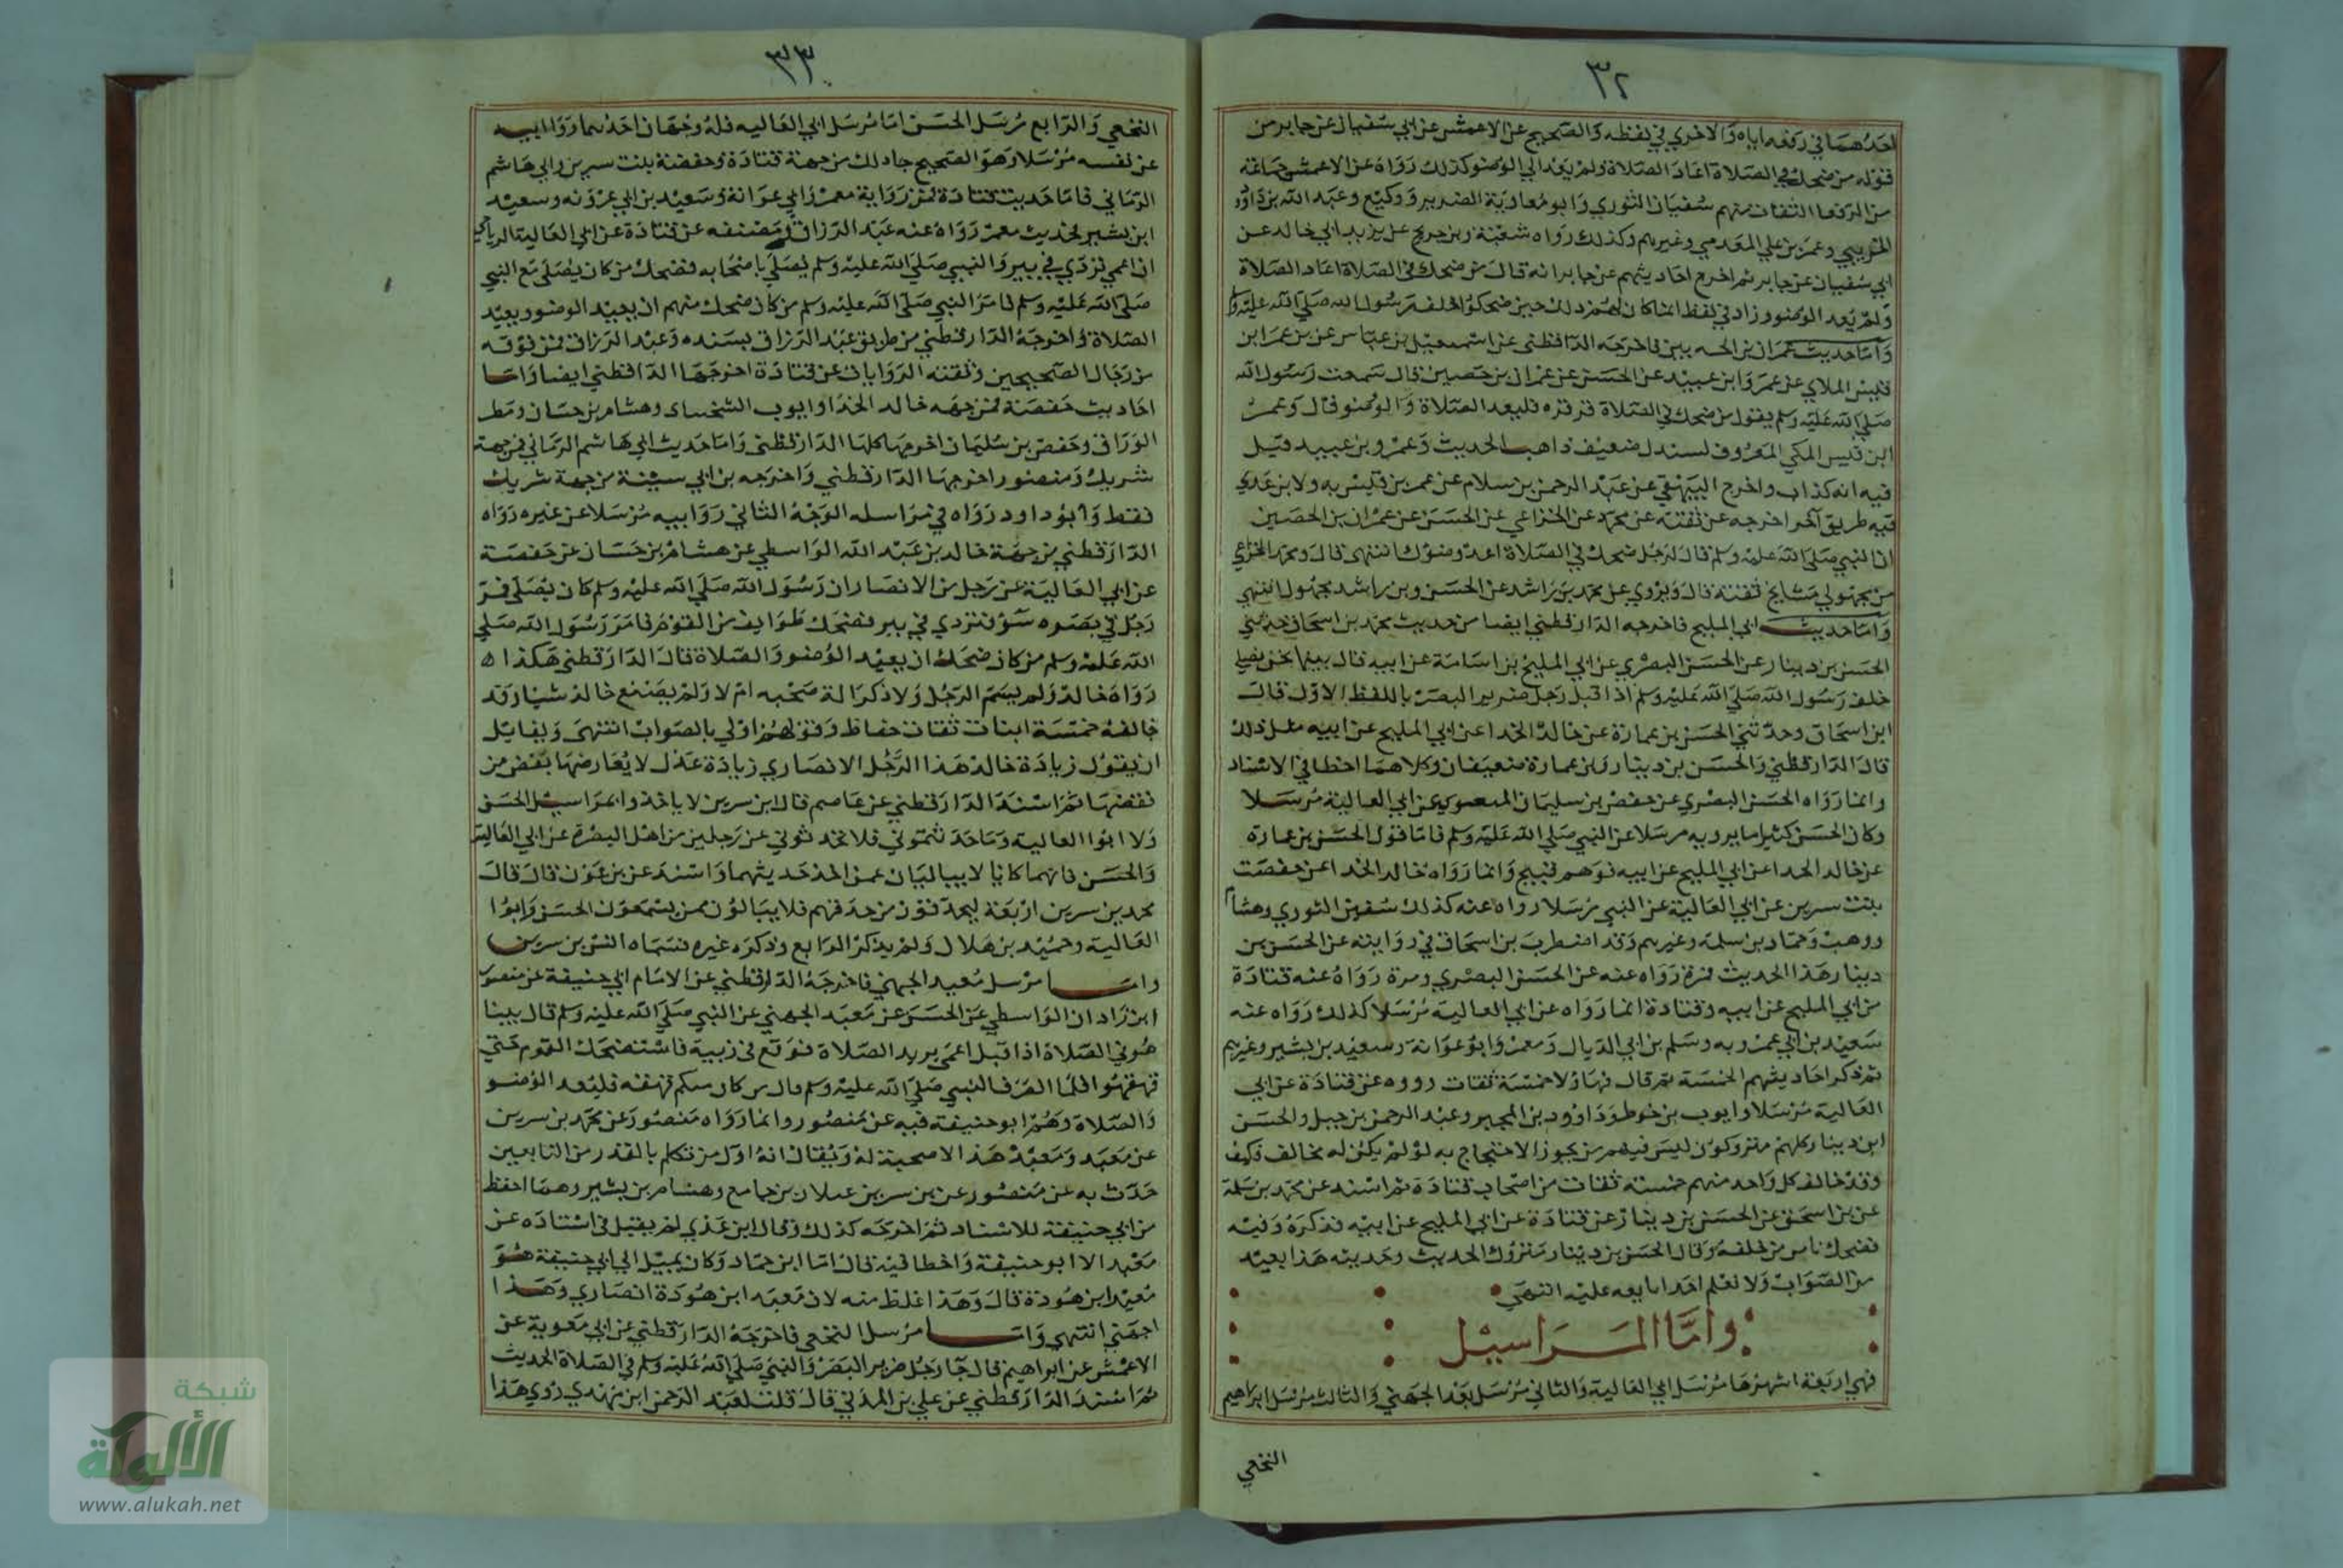 ٣٢
احدهما في رفعه اياه والاخرى في لفظه والصحيح عن الاعمش عن ابي سفيان عن جابر من
قوله من ضحك في الصلاة اعاد الصلاة ولم يعد الى الوضو كذلك رواه عن الاعمش جماعة
من الرفعا الثقات منهم سفيان الثوري وابو معاوية الضرير ووكيع وعبد الله بن داود
الخريبي وعمر بن علي المقدمي وغيرهم وكذلك رواه شعبة وبن جريج عن يزيد ابي خالد عن
ابي سفيان عن جابر ثم اخرج احاديثهم عن جابر انه قال من ضحك في الصلاة اعاد الصلاة
ولم يعد الوضو وزاد في لفظ انما كان لهم ذلك حين ضحكوا خلف رسول الله صلى الله عليه
واما حديث عمران بن الحصين فاخرجه الدارقطني عن اسمعيل بن عياش عن بن عمر ابن
قيس الملاي عن عمرو ابن عبيد عن الحسن عن عمران بن حصين قال سمعت رسول الله
صلى الله عليه وسلم يقول من ضحك في الصلاة قرقره فليعد الصلاة والوضو قال وعمر
ابن قيس المكي المعروف لسندل ضعيف ذاهب الحديث وعمرو بن عبيد قيل
فيه انه كذاب واخرج البيهقي عن عبد الرحمن بن سلام عن عمر بن قيس به ولابن عدي
فيه طريق آخر اخرجه عن ثقته عن محمد عن الخزاعي عن الحسن عن عمران بن الحصين
ان النبي صلى الله عليه وسلم قال لرجل ضحك في الصلاة اعد وضوك انتهى قال ومحمد الخزاعي
من مجهولي مشايخ ثقته قال ويروي عن محمد بن راشد عن الحسن وبن راشد مجهول انتهى
واما حديث ابي المليح فاخرجه الدارقطني ايضا من حديث محمد بن اسحاق حدثني
الحسن بن دينار عن الحسن البصري عن ابي المليح بن اسامة عن ابيه قال بينما نحن نصلي
خلف رسول الله صلى الله عليه وسلم اذ اقبل رجل ضرير البصر باللفظ الاول قال
ابن اسحاق وحدثني الحسن بن عمارة عن خالد الحذا عن ابي المليح عن ابيه مثل ذلك
قال الدارقطني والحسن بن دينار وبن عمارة ضعيفان وكلاهما اخطا في الاسناد
وانما رواه الحسن البصري عن حفص بن سليمان المنقري عن ابي العالية مرسلا
وكان الحسن كثيرا ما يرويه مرسلا عن النبي صلى الله عليه وسلم فاما قول الحسن بن عمارة
عن خالد الحذا عن ابي المليح عن ابيه فوهم قبيح وانما رواه خالد الحذا عن حفصت
بنت سرين عن ابي العالية عن النبي مرسلا رواه عنه كذلك سفين الثوري وهشام
ووهب وحماد بن سلمة وغيرهم وقد اضطرب بن اسحاق في روايته عن الحسن بن
دينار هذا الحديث فمرة رواه عنه عن الحسن البصري ومرة رواه عنه قتادة
من ابي المليح عن ابيه وقتادة انما رواه عن ابي العالية مرسلا كذلك رواه عنه
سعيد بن ابي عمروبه وسلم بن ابي الذيال ومعمر وابو عوانة وسعيد بن بشير وغيرهم
ثم ذكر احاديثهم الخمسة ثم قال فهاولا خمسة ثقات رووه عن قتادة عن ابي
العالية مرسلا وايوب بن خوط وداوود بن المحبر وعبد الرحمن بن جبل والحسن
ابن دينار كلهم متروكون ليس فيهم من يجوز الاحتجاج به لو لم يكن له مخالف فكيف
وقد خالف كل واحد منهم خمسته ثقات من اصحاب قتادة ثم اسند عن محمد بن سلمة
عن بن اسحق عن الحسن بن دينار عن قتادة عن ابي المليح عن ابيه فذكره وفيه
فضحك ناس من خلفه وقال الحسن بن دينار متروك الحديث وحديثه هذا بعيد
من الصواب ولا نعلم احدا تابعه عليه انتهى
واما المراسيل
فهي اربعة اشهرها مرسل ابي العالية والثاني مرسل معبد الجهني والثالث مرسل ابراهيم
النخعي
٣٣
النخعي والرابع مرسل الحسن اما مرسل ابي العاليه فله وجهان احدهما روايه
عن نفسه مرسلا وهو الصحيح جا ذلك من جهة قتادة وحفصة بنت سيرين وابي هاشم
الرماني فاما حديث قتادة فمن رواية معمر وابي عوانة وسعيد بن ابي عروبه وسعيد
ابن بشير فحديث معمر رواه عنه عبد الرزاق في مصنفه عن قتادة عن ابي العالية الرياحي
ان اعمى تردي في بير والنبي صلى الله عليه وسلم يصلي باصحابه فضحك من كان يصلي مع النبي
صلى الله عليه وسلم فامر النبي صلى الله عليه وسلم من كان ضحك منهم ان يعيد الوضو ويعيد
الصلاة واخرجه الدارقطني من طريق عبد الرزاق بسنده وعبد الرزاق فمن فوقه
من رجال الصحيحين وبقية الروايات عن قتادة اخرجها الدارقطني ايضا واما
احاديث حفصة فمن جهه خالد الحذا وايوب السختياني وهشام بن حسان ومطر
الوراق وحفص بن سليمان اخرجها كلها الدارقطني واما حديث ابي هاشم الرماني فمن جهة
شريك ومنصور اخرجها الدارقطني واخرجه بن ابي شيبة من جهة شريك
فقط وابو داود رواه في مراسله الوجه الثاني روايه مرسلا عن غيره رواه
الدارقطني من جهة خالد بن عبد الله الواسطي عن هشام بن حسان عن حفصة
عن ابي العالية عن رجل من الانصار ان رسول الله صلى الله عليه وسلم كان يصلي فمر
رجل في بصره سوء فتردي في بير فضحك طوايف من القوم فامر رسول الله صلى
الله عليه وسلم من كان ضحك ان يعيد الوضو والصلاة قال الدارقطني هكذا
رواه خالد ولم يسم الرجل ولا ذكر اله صحبه ام لا ولم يصنع خالد شيا وقد
خالفه خمسة اثبات ثقات حفاظ وقولهم اولى بالصواب انتهى ولقايل
ان يقول زيادة خالد هذا الرجل الانصاري زيادة عدل لا يعارضها نقص من
نقصها ثم اسند الدارقطني عن عاصم قال ابن سرين لا ياخذوا بمراسيل الحسن
ولا ابوا العالية وما حدثتموني فلا تحدثوني عن رجلين من اهل البصرة عن ابي العالية
والحسن فانهما كانا لا يباليان عمن اخذ حديثهما واسند عن بن عون قال قال
محمد بن سرين اربعة يصدقون من حدثهم فلا يبالون ممن يسمعون الحسن وابوا
العالية وحميد بن هلال ولم يذكر الرابع وذكره غيره فسماه انس بن سرين
واما مرسل معبد الجهني فاخرجه الدارقطني عن الامام ابي حنيفة عن منصور
ابن زاذان الواسطي عن الحسن عن معبد الجهني عن النبي صلى الله عليه وسلم قال بينا
هو في الصلاة اذا قبل اعمى يريد الصلاة فوقع في زبية فاستضحك القوم حتى
قهقهوا فلما انصرف النبي صلى الله عليه وسلم قال من كان منكم قهقه فليعد الوضو
والصلاة وهم ابو حنيفة فيه عن منصور وانما رواه منصور عن محمد بن سرين
عن معبد ومعبد هذا لا صحبة له ويقال انه اول من تكلم بالقدر من التابعين
حدث به عن منصور عن بن سرين غيلان بن جامع وهشام بن بشير وهما احفظ
من ابي حنيفة للاسناد ثم اخرجه كذلك وقال ابن عدي لم يقل في اسناده عن
معبد الا ابو حنيفة واخطا فيه قال اما ابن حماد وكان يميل الى ابي حنيفة هو
معبد ابن هوذة قال وهذا غلط منه لان معبد ابن هوذة انصاري وهذا
اجهني انتهى واما مرسل النخعي فاخرجه الدارقطني عن ابي معوية عن
الاعمش عن ابراهيم قال جا رجل ضرير البصر والنبي صلى الله عليه وسلم في الصلاة الحديث
ثم اسند الدارقطني عن علي بن المدني قال قلت لعبد الرحمن ابن مهدي روي هذا
شبكة
الألوكة
www.alukah.net